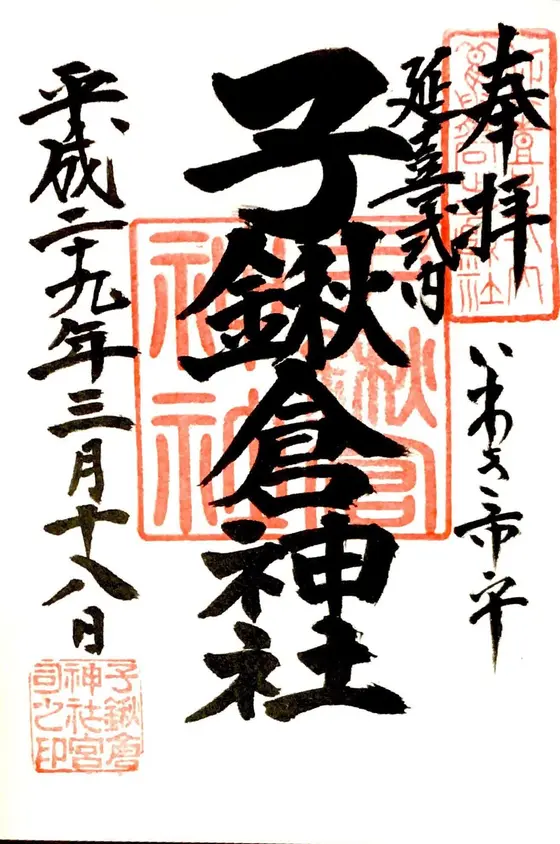 奉拝
いわき市平
延喜式内
子鍬倉神社
平成二十九年三月十八日
子鍬倉
神社宮
司之印